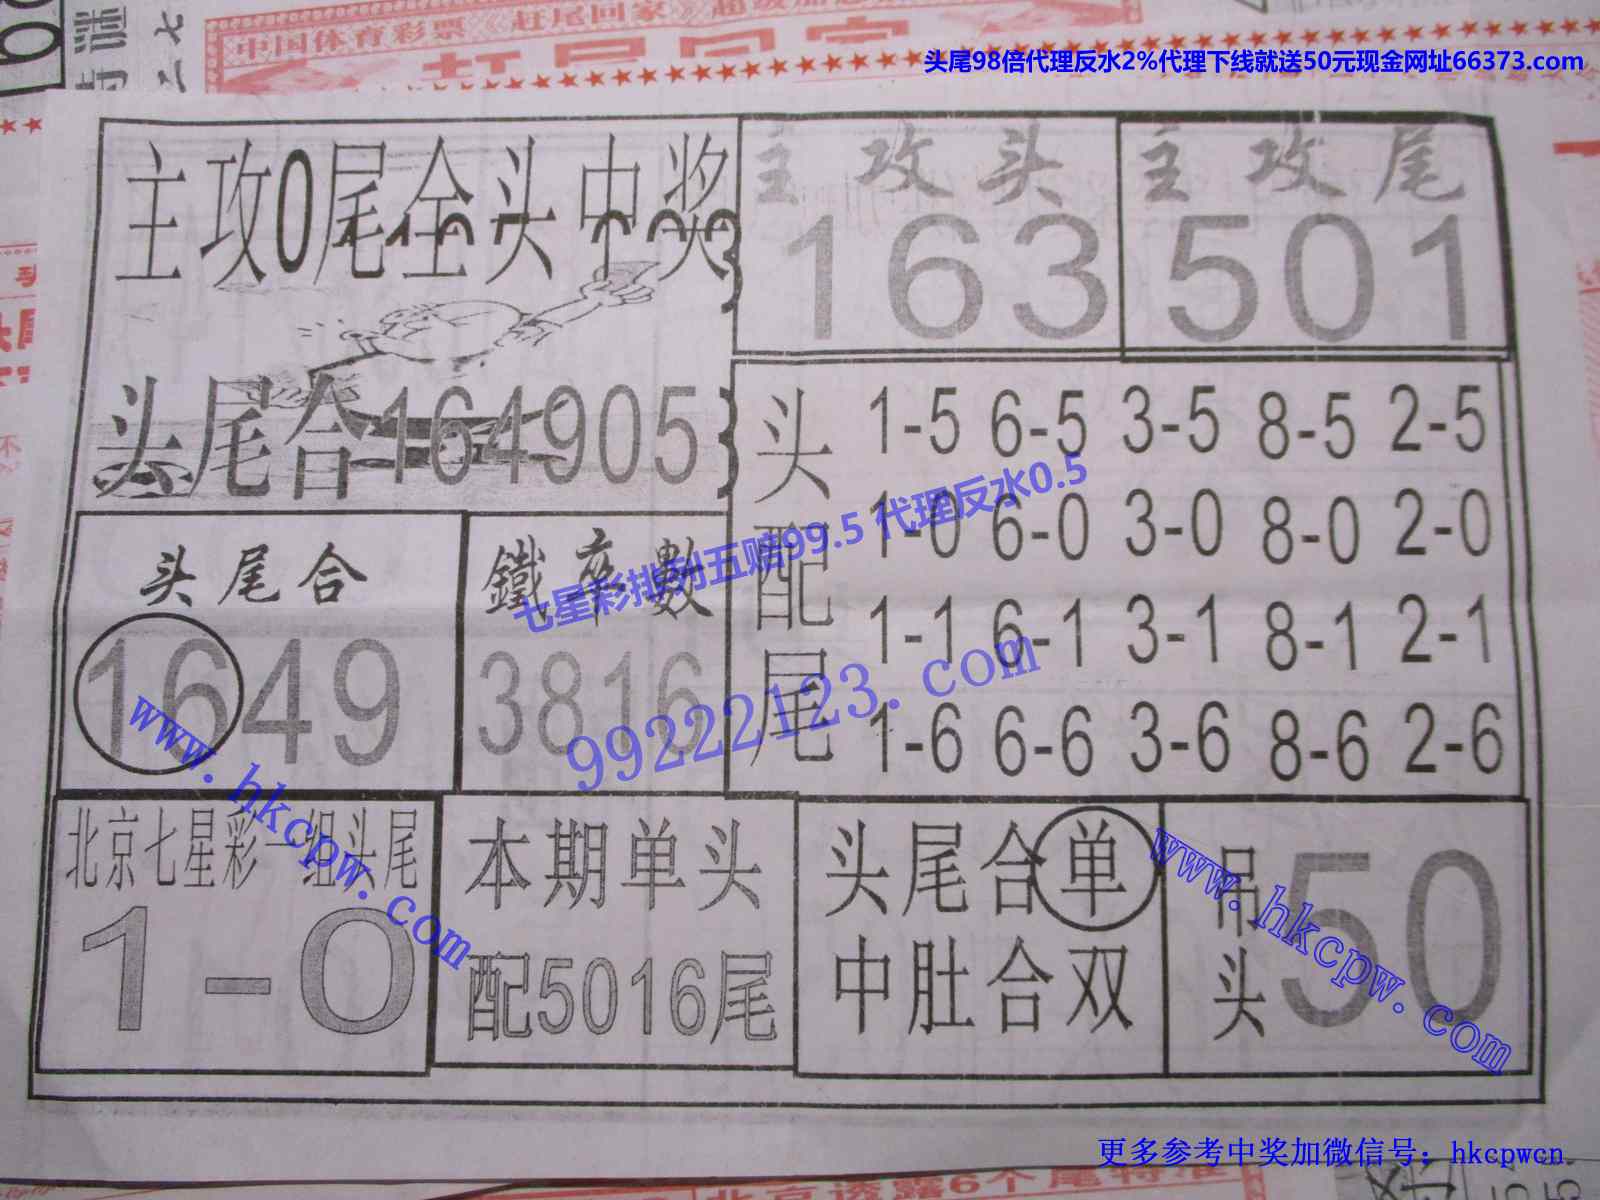 中国体育彩票《赶尾回家》
头尾98倍代理反水2%代理下线就送50元现金网址66373.com
主攻0尾全头中奖
主攻头
163
主攻尾
501
头尾合164905
头配尾
1-5 6-5 3-5 8-5 2-5
1-0 6-0 3-0 8-0 2-0
1-1 6-1 3-1 8-1 2-1
1-6 6-6 3-6 8-6 2-6
七星彩排列五赔99.5 代理反水0.5
头尾合
1649
鐵卒數
3816
99222123.com
www.hkcpw.com
北京七星彩一组头尾
1-0
本期单头
配5016尾
头尾合单
中肚合双
吊头
50
www.hkcpw.com
更多参考中奖加微信号：hkcpwcn